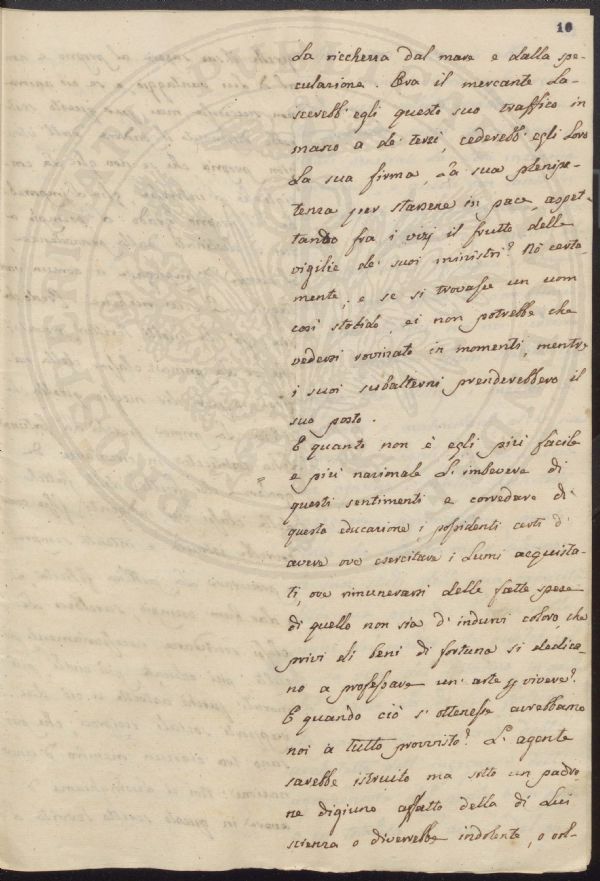 10
La ricchezza dal mare e dalla spe-
culazione. Ora il mercante La-
scerebb' egli questo suo traffico in
mano a de' terzi, cederebb' egli Loro
La sua firma, La sua plenipo-
tenza per starsene in pace, aspet-
tando fra i vizj il frutto delle
vigilie de' suoi ministri? Nò certa-
mente, e se si trovasse un uom
così stolido, ei non potrebbe che
vedersi rovinato in momenti, mentre
i suoi subalterni prenderebbero il
suo posto.
E quanto non è egli più facile
e più nazionale L' imbevere di
questi sentimenti e corredare di
questa educazione, i possidenti certi d'
avere ove esercitare i Lumi acquista-
ti, ove rimunerarsi delle fatte spese
di quello non sia d' indurvi coloro, che
privi di beni di fortuna si dedica-
no a professare un' arte p vivere?
E quando ciò s' ottenesse avrebbamo
noi a tutto provvisto? L' agente
sarebbe istruito ma sotto un padro-
ne digiuno affatto della di Lui
scienza o diverrebbe indolente, o vol-